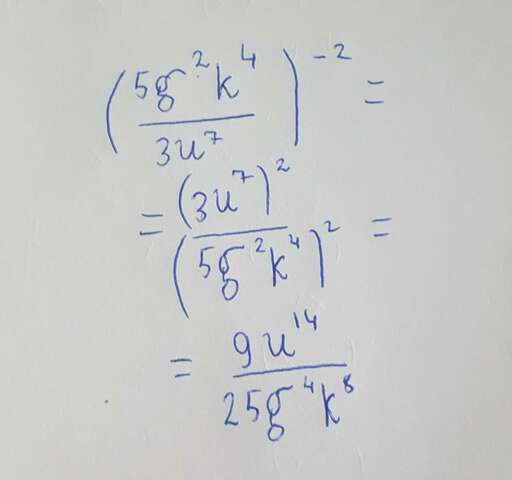 (5g²k⁴/3u⁷)⁻² =
= (3u⁷)²/(5g²k⁴)² =
= 9u¹⁴/25g⁴k⁸